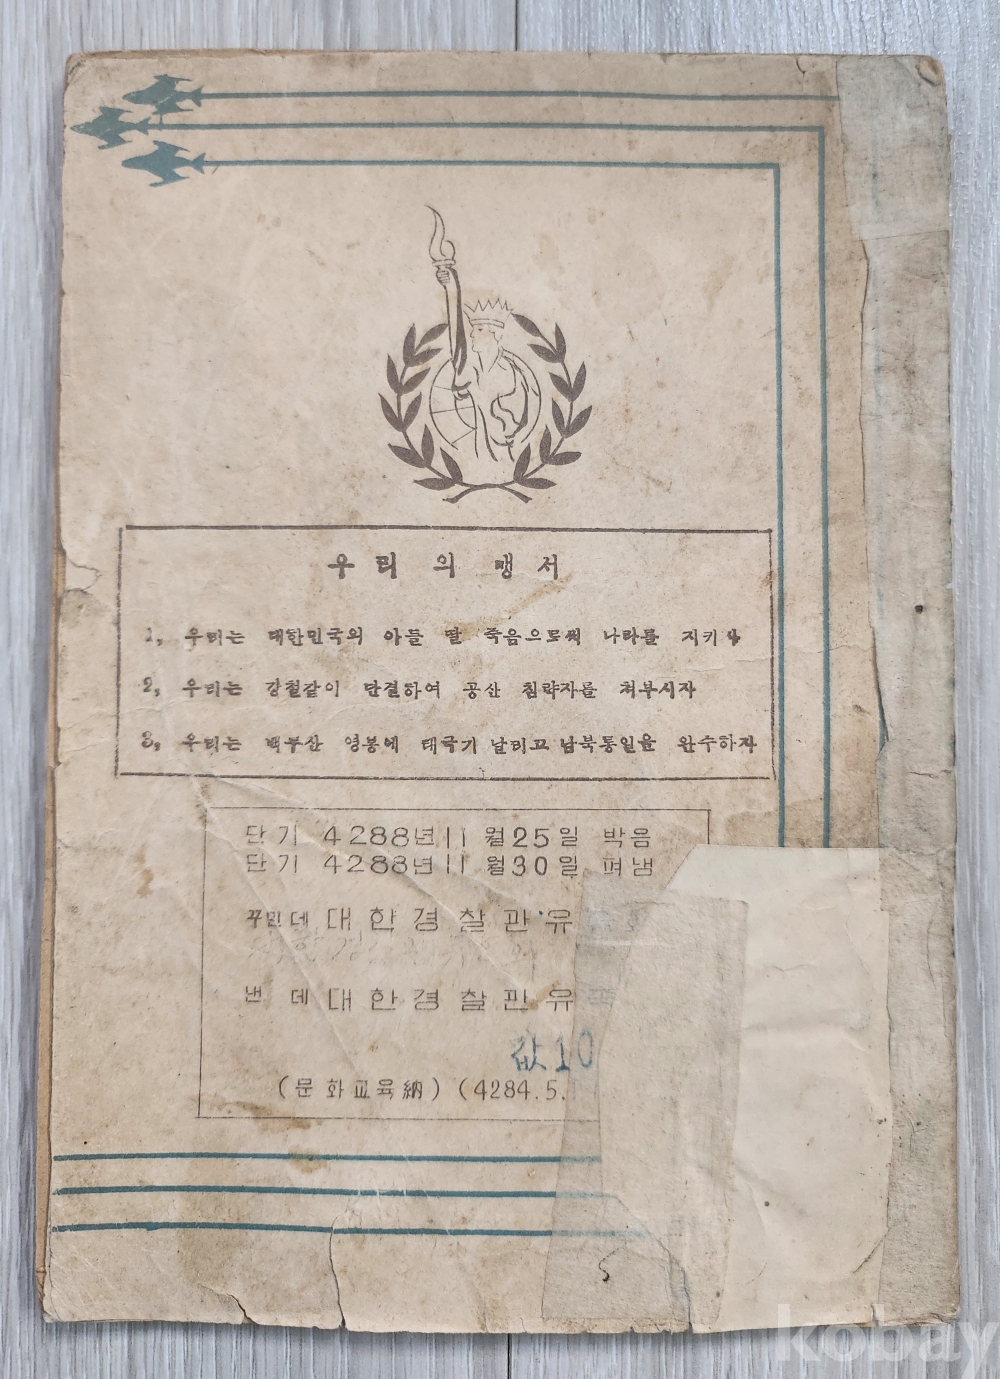 우리의 맹서
1, 우리는 대한민국의 아들 딸 죽음으로써 나라를 지키자
2, 우리는 강철같이 단결하여 공산 침략자를 처부시자
3, 우리는 백두산 영봉에 태극기 날리고 남북통일을 완수하자
단기 4288년 11월 25일 박음
단기 4288년 11월 30일 펴냄
꾸민데 대한경찰관유
낸데 대한경찰관유
값10
(문화교육納) (4284.5.
kobay